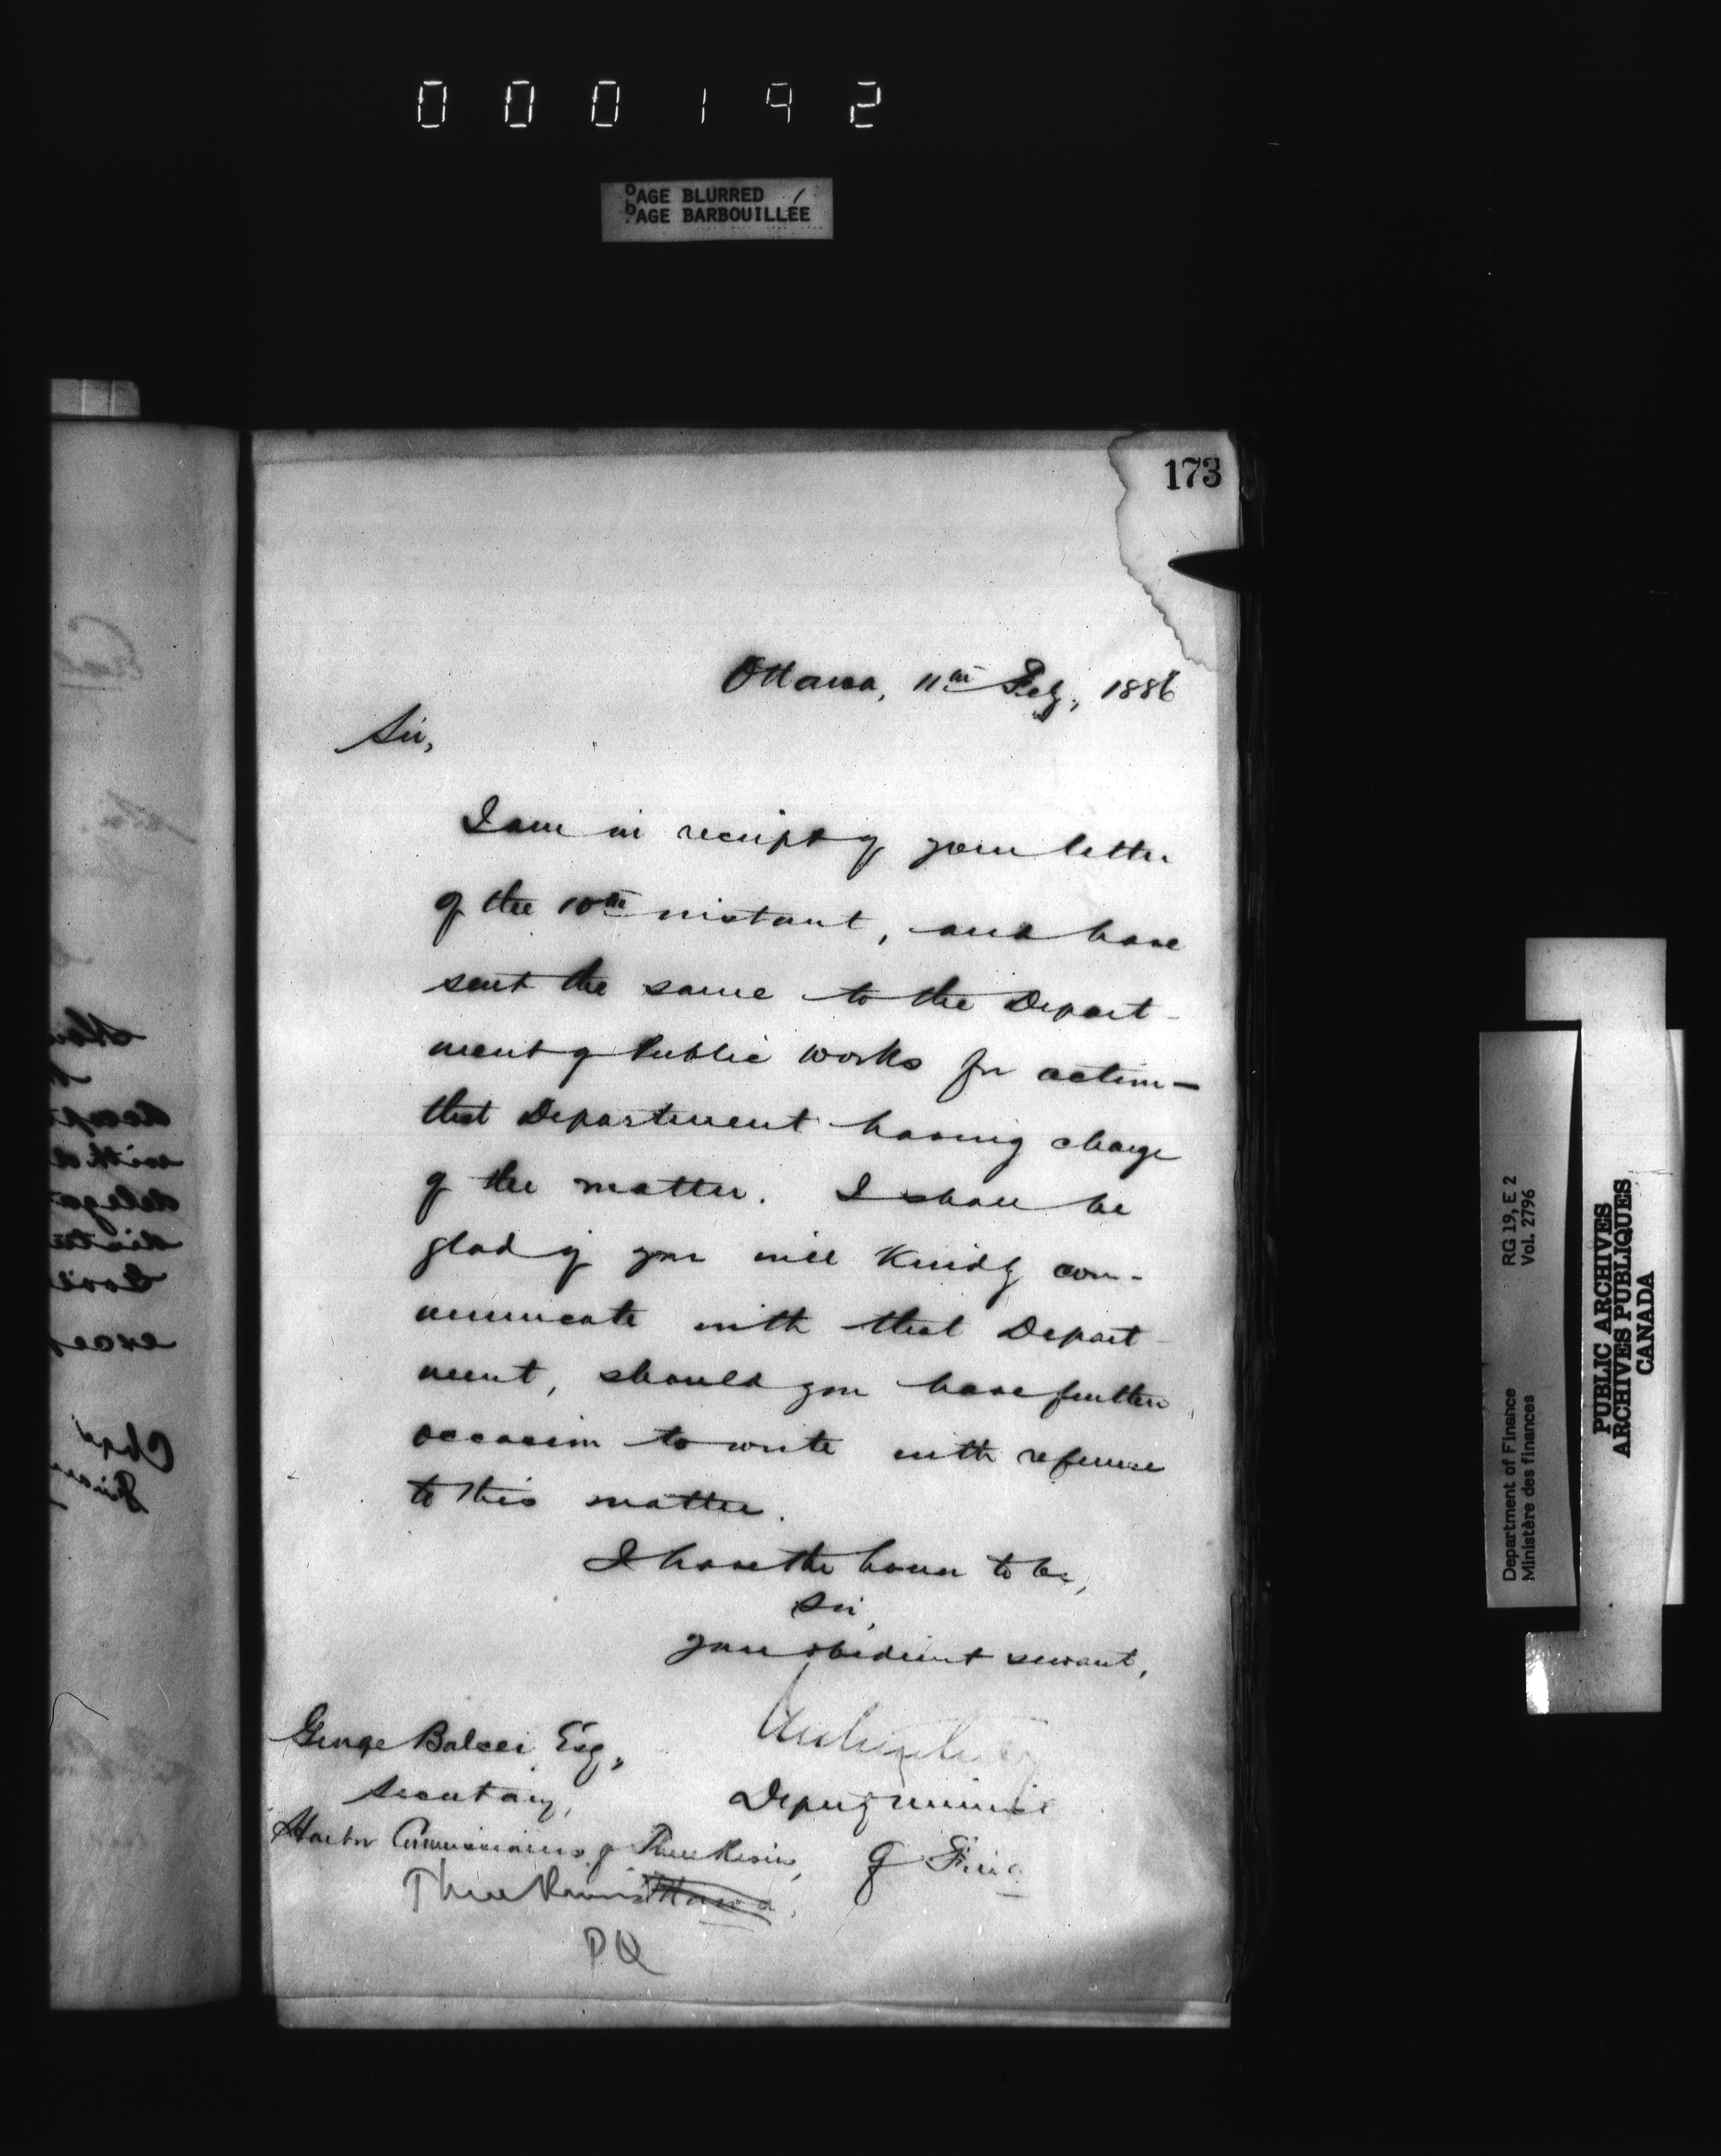 000142
PAGE BLURRED
PAGE BARBOUILLÉE
173
Ottawa, 11th Feby, 1886
Sir,
I am in receipt of your letter
of the 10th instant, and have
sent the same to the Depart-
ment of Public Works for action—
that Department having charge
of the matter. I shall be
glad if you will kindly com-
municate with that Depart-
ment, should you have further
occasion to write with reference
to this matter.
I have the honor to be,
Sir,
your obedient servant,
Deputy Minister
of Fin
George Balcer Esq,
Secretary,
Harbor Commissioners of Three Rivers,
Three Rivers Ottawa,
PQ
RG 19, E 2
Vol. 2796
Department of Finance
Ministère des finances
PUBLIC ARCHIVES
ARCHIVES PUBLIQUES
CANADA